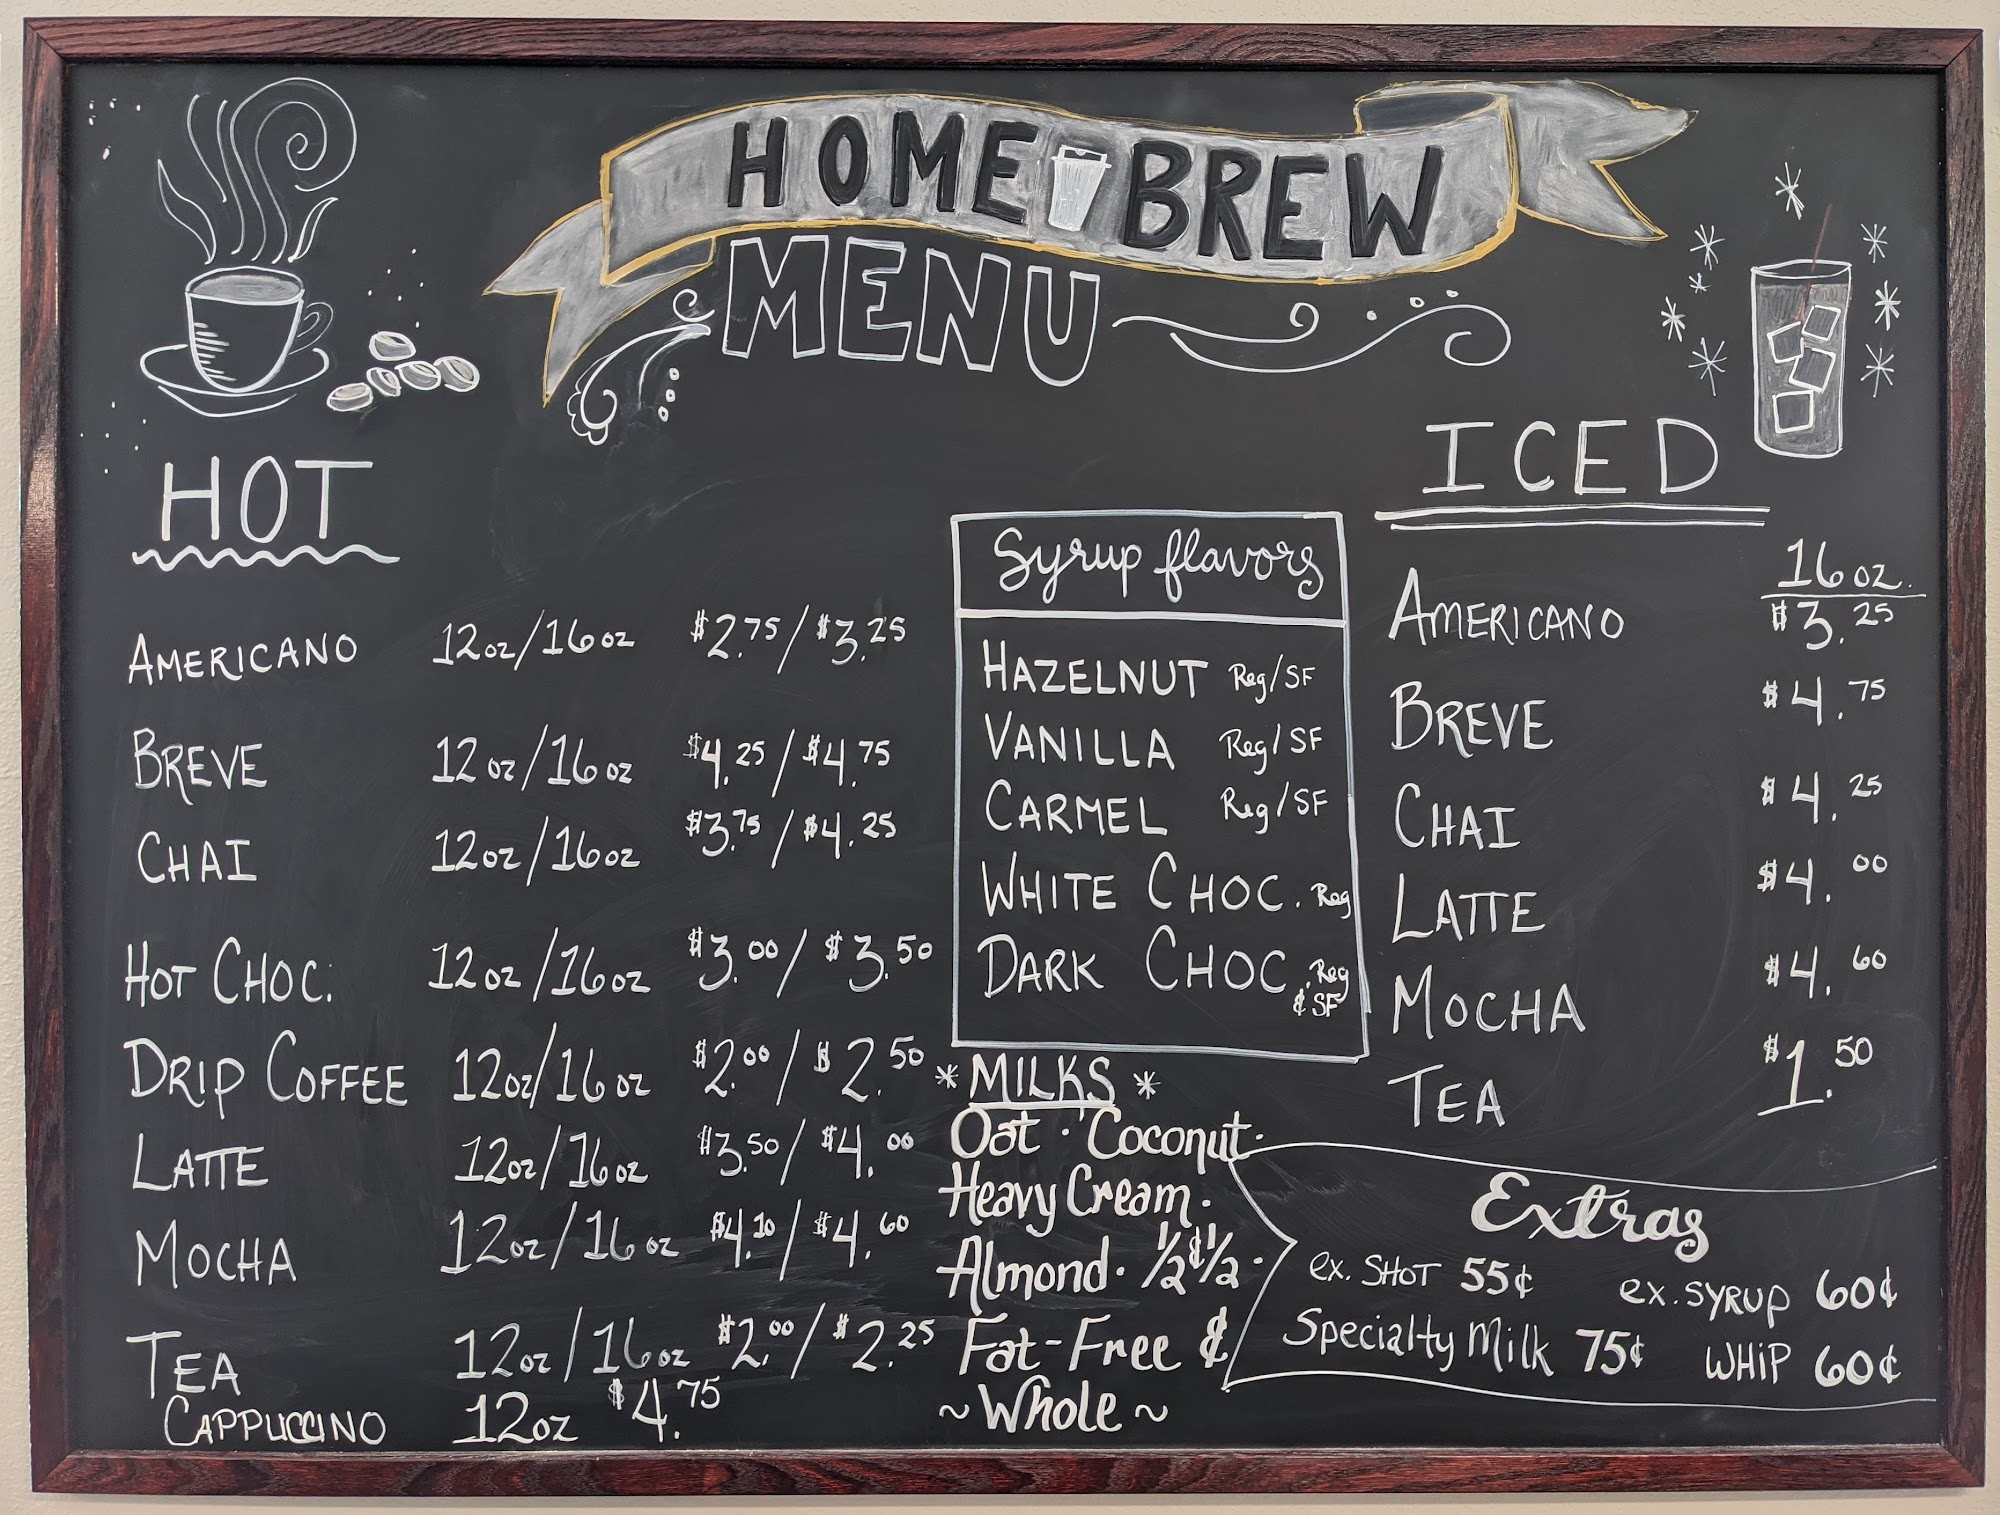 HOME BREW
MENU
HOT
AMERICANO 12oz/16oz $2.75/$3.25
BREVE 12oz/16oz $4.25/$4.75
CHAI 12oz/16oz $3.75/$4.25
HOT CHOC. 12oz/16oz $3.00/$3.50
DRIP COFFEE 12oz/16oz $2.00/$2.50
LATTE 12oz/16oz $3.50/$4.00
MOCHA 12oz/16oz $4.10/$4.60
TEA 12oz/16oz $2.00/$2.25
CAPPUCCINO 12oz $4.75
Syrup flavors
HAZELNUT Reg/SF
VANILLA Reg/SF
CARMEL Reg/SF
WHITE CHOC. Reg
DARK CHOC. Reg
& SF
*MILKS*
Oat · Coconut ·
Heavy Cream ·
Almond · 1/2&1/2 ·
Fat-Free &
~Whole~
ICED
16oz.
AMERICANO $3.25
BREVE $4.75
CHAI $4.25
LATTE $4.00
MOCHA $4.60
TEA $1.50
Extras
ex. SHOT 55¢ ex. SYRUP 60¢
Specialty Milk 75¢ WHIP 60¢